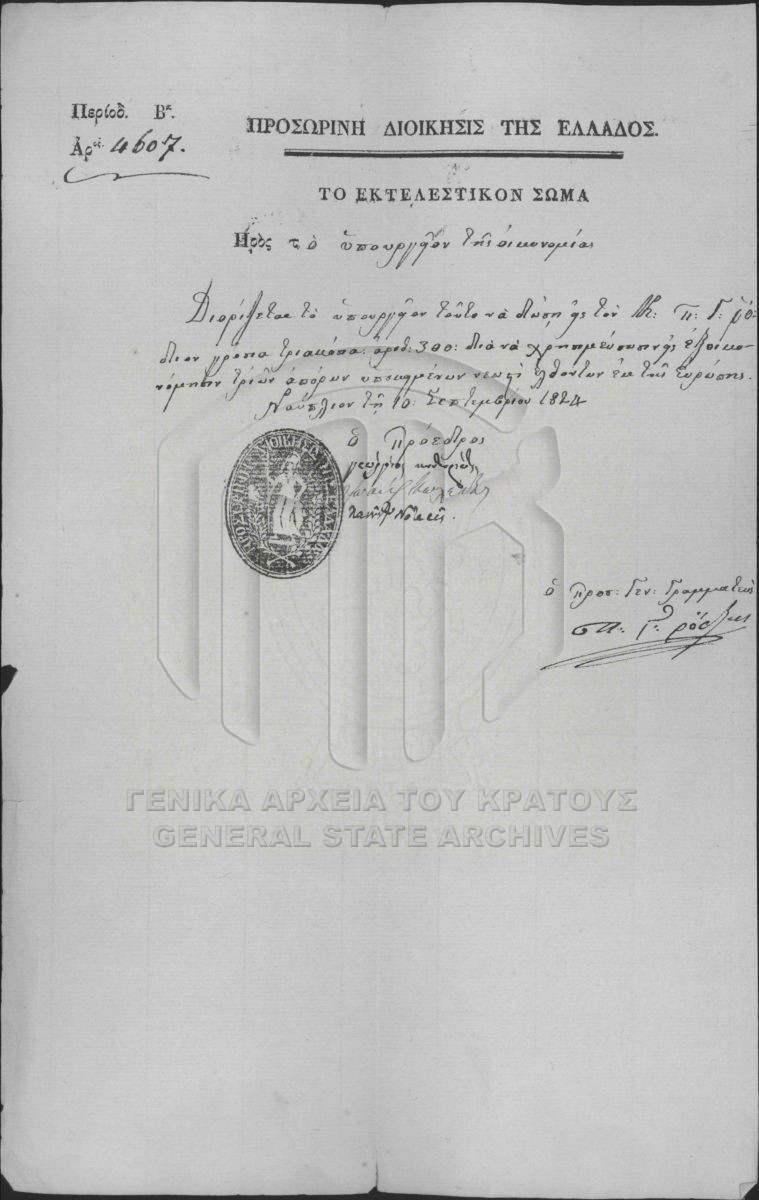 Περίοδ. Βα.
ΠΡΟΣΩΡΙΝΗ ΔΙΟΙΚΗΣΙΣ ΤΗΣ ΕΛΛΑΔΟΣ.
Ἀρ. 4607.
ΤΟ ΕΚΤΕΛΕΣΤΙΚΟΝ ΣΩΜΑ
Πρὸς τὸ ὑπουργεῖον τῆς οἰκονομίας
Διορίζεται τὸ ὑπουργεῖον τοῦτο νὰ δώσῃ εἰς τὸν Κ: Π: Γ: Ῥό-
διον γρόσια τριακόσια: ἀριθ: 300: διὰ νὰ χρησιμεύσωσιν εἰς ἐξοικο-
νόμησιν τριῶν ἀπόρων ὑποκειμένων νεωστὶ ἐλθόντων ἐκ τῆς Εὐρώπης.
Ναύπλιον τῇ 10: Σεπτεμβρίου 1824
ὁ Πρόεδρος
γεώργιος κουντουριώτης
ΠΡΟΣΩΡΙΝΗ ΔΙΟΙΚΗΣΙΣ ΤΗΣ ΕΛΛΑΔΟΣ
ὁ Προσ: Γεν: Γραμματεὺς
Π: Γ: Ῥόδιος
ΓΕΝΙΚΑ ΑΡΧΕΙΑ ΤΟΥ ΚΡΑΤΟΥΣ
GENERAL STATE ARCHIVES